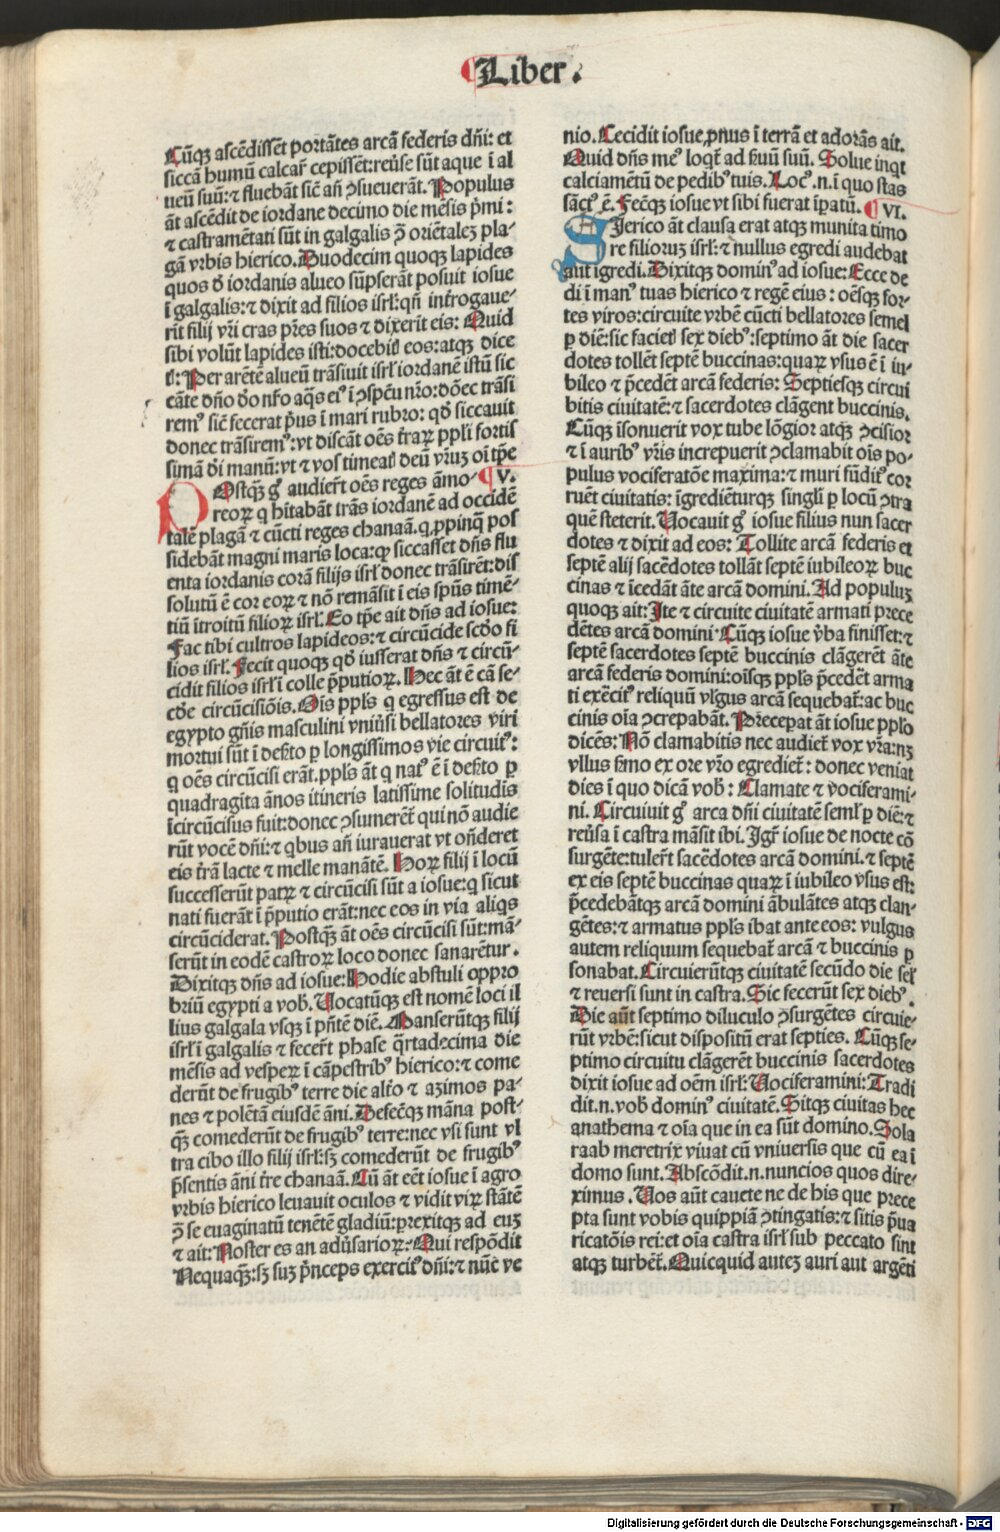 Liber.
Cūqꝫ ascēdissēt portātes arcā federis dn̄i: et
siccā humū calcar̄ cepissēt: reu̇se sūt aque ī al
ueū suū: ⁊ fluebāt sic̄ an̄ ↄsueuerāt. Populus
āt ascēdit de iordane decimo die mēsis p̄mi:
⁊ castramētati sūt in galgalis ↄ̄ oriētalez pla-
gā vrbis hierico. Duodecim quoqꝫ lapides
quos d̄ iordanis alueo sūpserāt posuit iosue
ī galgalis: ⁊ dixit ad filios isrl̄: qn̄ introgaue-
rīt filij vr̄i cras pr̄es suos ⁊ dixerīt eis: Quid
sibi volūt lapides isti: docebitꝭ eos: atqꝫ dice
tꝭ: Per arētē alueū trāsiuit isrl̄ iordanē istū sic
cāte dn̄o dō nr̄o aq̄s eiꝰ ī ↄspc̄u nr̄o: dōec trāsi
remꝰ sic̄ fecerat pꝰus ī mari rubro: qd̄ siccauit
donec trāsiremꝰ: vt discāt oēs tr̄arꝝ pp̄li fortis
simā dn̄i manū: vt ⁊ vos timeatꝭ deū vr̄uꝫ oī tp̄e
POstqꝫ gͦ audierr̄t oēs reges āmo- ¶ V.
reorꝝ q hītabāt trās iordanē ad occidē
talē plagā ⁊ cūcti reges chanaā. q ꝓpinq̄ pos
sidebāt magni maris loca: ꝙ siccasset dn̄s flu
enta iordanis corā filijs isrl̄ donec trāsirēt: dis
solutū ē cor eorꝝ ⁊ nō remāsit ī eis spūs timē-
tiū ītroitū filiorꝝ isrl̄. Eo tp̄e ait dn̄s ad iosue:
Fac tibi cultros lapideos: ⁊ circūcide scd̄o fi
lios isrl̄. Fecit quoqꝫ qd̄ iusserat dn̄s ⁊ circū-
cidit filios isrl̄ ī colle p̄putiorꝝ. Hec āt ē cā se-
cūde circūcisiōis. Ois ppl̄s q egressus est de
egypto gn̄is masculini vniu̇si bellatores viri
mortui sūt ī des̄to ꝑ longissimos vie circuitꝰ:
q oēs circūcisi erāt. ppl̄s āt q natꝰ ē ī des̄to ꝑ
quadragīta ānos itineris latissime solitudīs
īcircūcisus fuit: donec ↄsumerēt̄ qui nō audie
rūt vocē dn̄i: ⁊ qbus an̄ iurauerat vt on̄deret
eis tr̄ā lacte ⁊ melle manātē. Horꝝ filij ī locū
successerūt patrꝝ ⁊ circūcisi sūt a iosue: q sicut
nati fuerāt ī p̄putio erāt: nec eos in via aliqs
circūciderat. Postqꝫ āt oēs circūcisi sūt: mā-
serūt in eodē castrorꝝ loco donec sanarētur.
Dixitqꝫ dn̄s ad iosue: Hodie abstuli oppro
briū egypti a vob̄. Uocatūqꝫ est nomē loci il
lius galgala vsqꝫ ī pn̄tē diē. Manserūtqꝫ filij
isrl̄ ī galgalis ⁊ fecer̄t phase q̄rtadecima die
mēsis ad vesperꝫ ī cāpestribꝰ hierico: ⁊ come
derūt de frugibꝰ terre die alt̄o ⁊ azimos pa-
nes ⁊ polētā eiusdē āni. Defec̄qꝫ māna post-
qꝫ comederūt de frugibꝰ terre: nec vsi sunt vl
tra cibo illo filij isrl̄: sꝫ comederūt de frugibꝰ
p̄sentis āni tr̄e chanaā. Cū āt ec̄t iosue ī agro
vrbis hierico leuauit oculos ⁊ vidit virꝫ stātē
ↄ̄ se euaginatū tenētē gladiū: ꝑrexitqꝫ ad euꝫ
⁊ ait: Noster es an adu̇sariorꝝ: Qui respōdit
Nequaqꝫ: sꝫ suꝫ p̄nceps exercitꝰ dn̄i: ⁊ nūc ve
nio. Cecidit iosue ꝓnus ī terrā et adorās ait.
Quid dn̄s meꝰ loqt̄ ad s̄uū suū. Solue inqt
calciamētū de pedibꝰ tuis. Locꝰ .n. ī quo stas
sāctꝰ ē. Fec̄qꝫ iosue vt sibi fuerat īꝑatū. ¶ VI.
HJerico āt clausa erat atqꝫ munita timo
re filioruꝫ isrl̄: ⁊ nullus egredi audebat
aut īgredi. Dixitqꝫ dominꝰ ad iosue: Ecce de
di ī manꝰ tuas hierico ⁊ regē eius: oēsqꝫ for-
tes viros: circuite vrbē cūcti bellatores semel
ꝑ diē: sic facietꝭ sex diebꝰ: septimo āt die sacer
dotes tollēt septē buccinas: quarꝝ vsus ē ī iu-
bileo ⁊ p̄cedēt arcā federis: Septiesqꝫ circui
bitis ciuitatē: ⁊ sacerdotes clāgent buccinis.
Cūqꝫ īsonuerit vox tube lōgior atqꝫ ↄcisior
⁊ ī auribꝰ vr̄is increpuerit ↄclamabit oīs po-
pulus vociferatōe maxima: ⁊ muri fūditꝰ cor
ruēt ciuitatis: īgrediēturqꝫ singl̄i ꝑ locū ↄtra
quē steterit. Uocauit gͦ iosue filius nun sacer
dotes ⁊ dixit ad eos: Tollite arcā federis et
septē alij sacēdotes tollāt septē iubileorꝝ buc
cinas ⁊ īcedāt āte arcā domini. Ad populuꝫ
quoqꝫ ait: Ite ⁊ circuite ciuitatē armati prece
dētes arcā domini. Cūqꝫ iosue v̄ba finisset: ⁊
septē sacerdotes septē buccinis clāgerēt āte
arcā federis domini: oīsqꝫ ppl̄s p̄cedēt arma
ti ex̄ecitꝰ reliquū vl̄gus arcā sequebat̄: ac buc
cinis oīa ↄcrepabāt. Pr̄eceꝑat āt iosue pplo
dicēs: Nō clamabitis nec audiet̄ vox vr̄a: nꝫ
vllus s̄mo ex ore vr̄o egrediet̄: donec veniat
dies ī quo dicā vob̄: Clamate ⁊ vociferami-
ni. Circuiuit gͦ arca dn̄i ciuitatē seml̄ ꝑ diē: ⁊
reu̇sa ī castra māsit ibi. Igr̄ iosue de nocte cō
surgēte: tuler̄t sacēdotes arcā domini. ⁊ septē
ex eis septē buccinas quarꝝ ī iubileo vsus est:
p̄cedebātqꝫ arcā domini ābulātes atqꝫ clan-
gētes: ⁊ armatus ppl̄s ibat ante eos: vulgus
autem reliquum sequebat̄ arcā ⁊ buccinis ꝑ
sonabat. Circuierūtqꝫ ciuitatē secūdo die sel̄
⁊ reuersi sunt in castra. Sic fecerūt sex diebꝰ.
Die aūt septimo diluculo ↄsurgētes circuie-
rūt vrbē: sicut dispositū erat septies. Cūqꝫ se-
ptimo circuitu clāgerēt buccinis sacerdotes
dixit iosue ad oēm isrl̄: Uociferamini: Tradi
dit .n. vob̄ dominꝰ ciuitatē. Sitqꝫ ciuitas hec
anathema ⁊ oīa que in ea sūt domino. Sola
raab meretrix viuat cū vniuersis que cū ea ī
domo sunt. Abscōdit .n. nuncios quos dire-
ximus. Uos aūt cauete ne de his que prece
pta sunt vobis quippiā ↄtingatis: ⁊ sitis p̄ua
ricatōis rei: et oīa castra isrl̄ sub peccato sint
atqꝫ turbet̄. Quicquid auteꝫ auri aut argēti
Digitalisierung gefördert durch die Deutsche Forschungsgemeinschaft - DFG